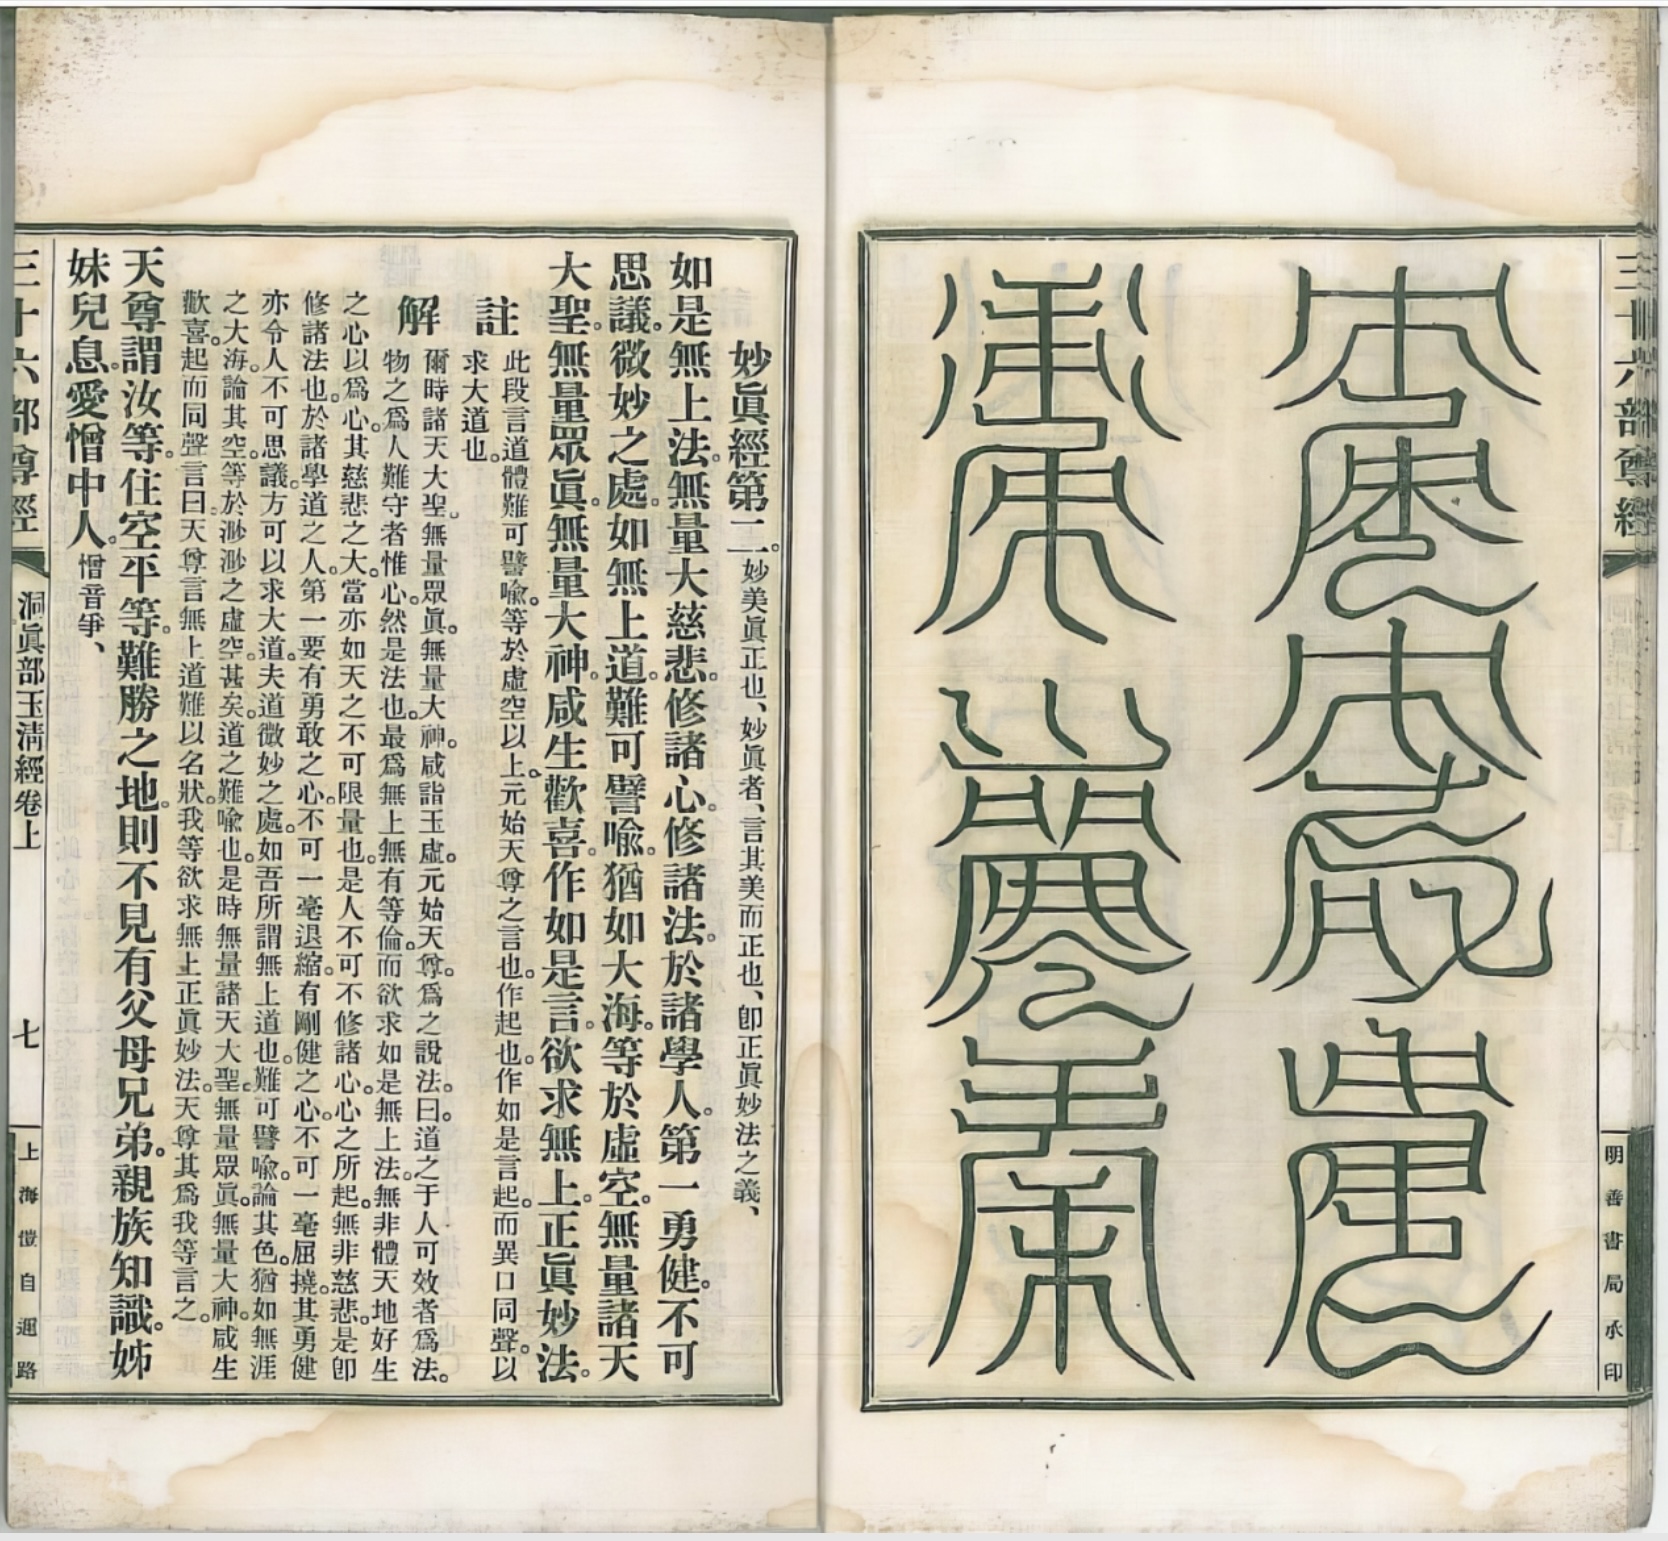 三十六部尊經
明善書局承印
妙眞經第二。妙美眞正也、妙眞者、言其美而正也、卽正眞妙法之義、
如是無上法。無量大慈悲。修諸心。修諸法。於諸學人。第一勇健。不可
思議。微妙之處。如無上道。難可譬喩。猶如大海。等於虛空。無量諸天
大聖。無量眾眞。無量大神。咸生歡喜。作如是言。欲求無上正眞妙法。
註
此段言道體難可譬喩。等於虛空以上。元始天尊之言也。作起也。作如是言起。而異口同聲。以
求大道也。
解
爾時諸天大聖。無量眾眞。無量大神。咸詣玉虛。元始天尊。爲之說法。曰。道之于人可效者爲法。
物之爲人難守者惟心。然是法也。最爲無上。無有等倫。而欲求如是無上法。無非體天地好生
之心以爲心。其慈悲之大。當亦如天之不可限量也。是人不可不修諸心。心之所起。無非慈悲。是卽
修諸法也。於諸學道之人。第一要有勇敢之心。不可一毫退縮。有剛健之心。不可一毫屈撓。其勇健
亦令人不可思議。方可以求大道。夫道微妙之處。如吾所謂無上道也。難可譬喩。論其色。猶如無涯
之大海。論其空。等於渺渺之虛空。甚矣。道之難喩也。是時無量諸天大聖。無量眾眞。無量大神。咸生
歡喜。起而同聲言曰。天尊言無上道難以名狀。我等欲求無上正眞妙法。天尊其爲我等言之。
天尊謂汝等。住空平等。難勝之地。則不見有父母兄弟。親族知識。姊
妹兒息。愛憎中人。憎音爭、
三十六部尊經
洞眞部玉淸經卷上
七
上海愷自邇路